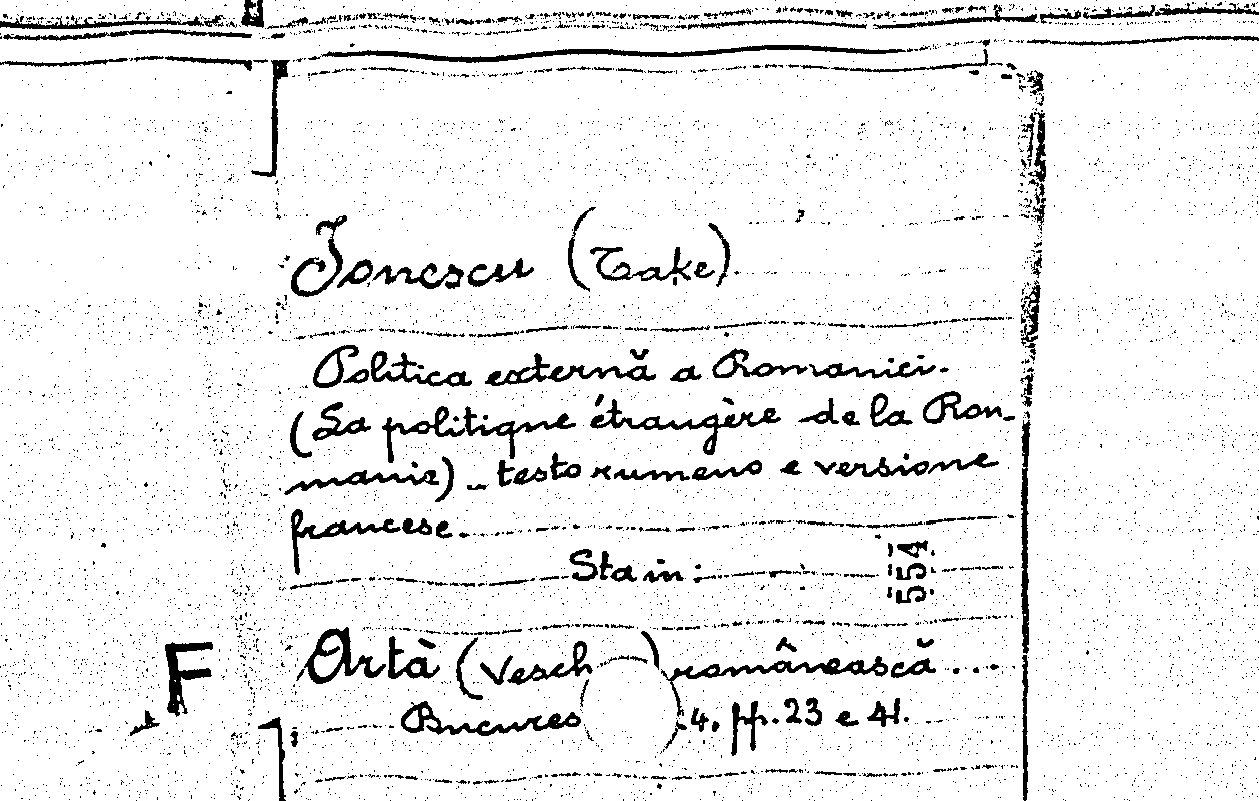 Jonescu (Take)
Politica externă a Romaniei.
(La politique étrangère de la Rou-
manie) - testo rumeno e versione
francese.
Sta in:
554
F
Artà (Vesch ) românească ...
Bucures .4. pp. 23 e 41.